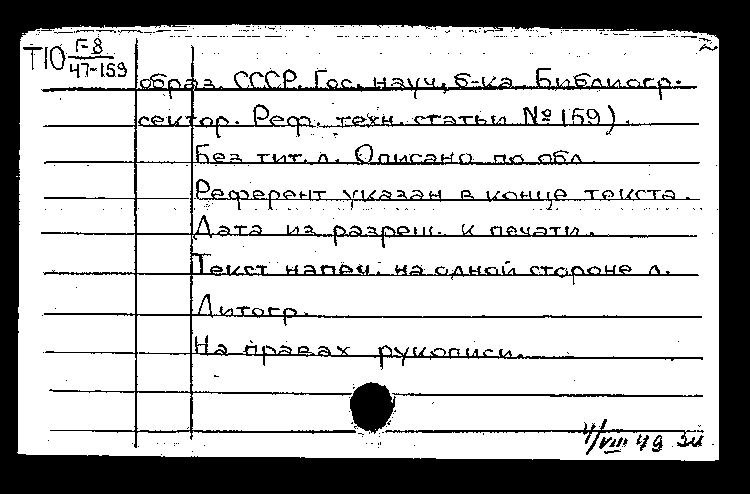 Т10 Г-8
47-159
2
образ. СССР. Гос. науч. б-ка. Библиогр.
сектор. Реф. техн. статьи № 159).
Без тит. л. Описано по обл.
Референт указан в конце текста.
Дата из разреш. к печати.
Текст напеч. на одной стороне л.
Литогр.
На правах рукописи.
4/VIII 49